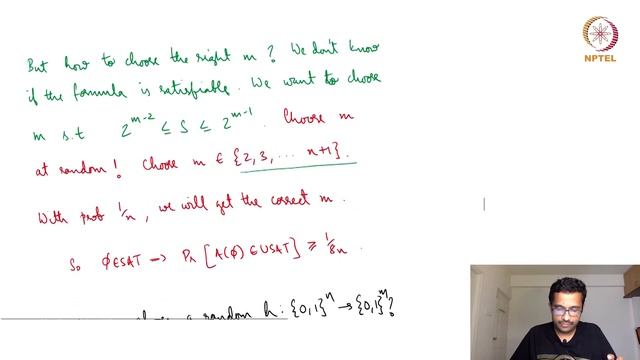 But how to choose the right m? We don't know
if the formula is satisfiable. We want to choose
m s.t 2^{m-2} ≤ S ≤ 2^{m-1}. Choose m
at random! Choose m ∈ {2, 3, ... n+1}.
With prob 1/n, we will get the correct m.
So ϕ ∈ SAT → Pr [A(ϕ) ∈ USAT] ≥ 1/8n.
a random h: {0,1}^n → {0,1}^m ?
NPTEL